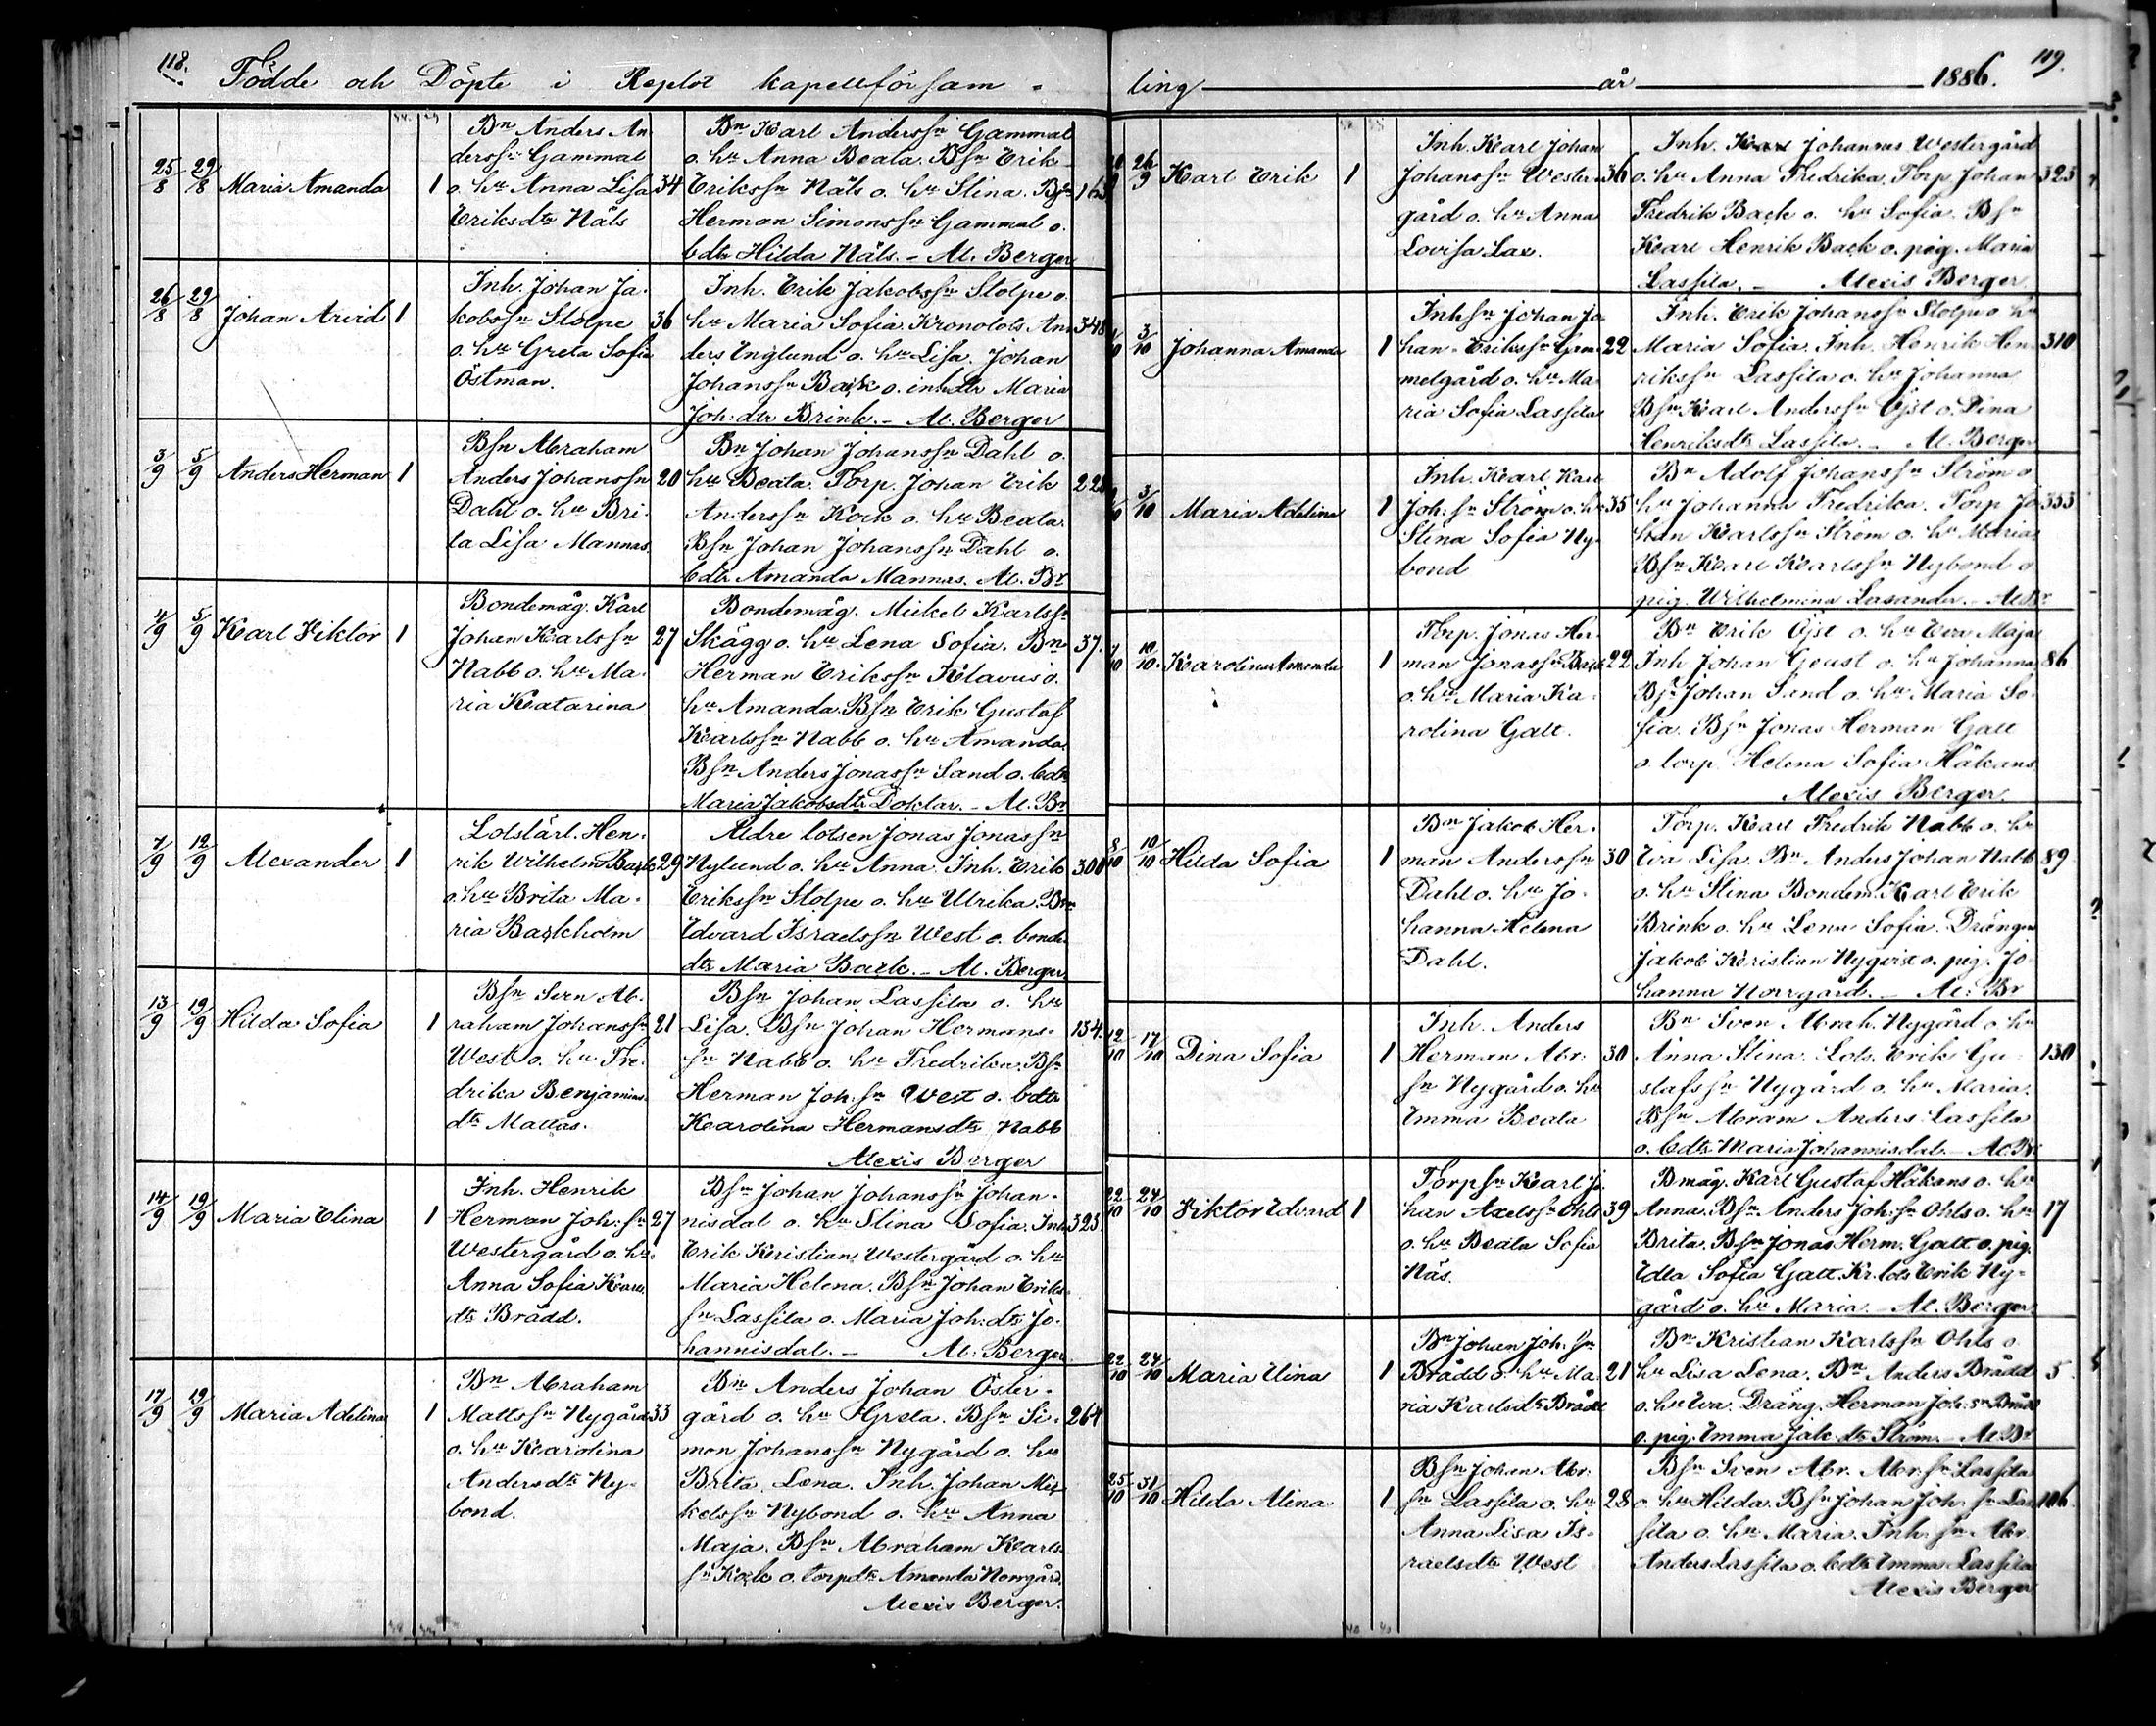 118.
Födde och Döpte i Replot kapellförsam-
25/8 29/8 Maria Amanda 1
Bn Anders An
derssn Gammal
o. hu Anna Lisa 34
Eriksdtr Näls
Bn Karl Anderssn Gammal
o. hu Anna Beata. Bsn Erik
Erikssn Näls o. hu Stina. Bsn
Herman Simonssn Gammal o.
bdtr Hilda Näls. - Al. Berger
26/8 29/8 Johan Arvid 1
Inh. Johan Ja-
kobssn Stolpe 36
o. hu Greta Sofia
Östman.
Inh. Erik Jakobssn Stolpe o.
hu Maria Sofia. Kronolots An- 348
ders Englund o. hu Lisa. Johan
Johanssn Back o. inhdtr Maria
Joh:dtr Brink. - Al. Berger
3/9 5/9 Anders Herman 1
Bsn Abraham
Anders Johanssn 20
Dahl o. hu Bri-
ta Lisa Mannas.
Bn Johan Johanssn Dahl o.
hu Beata. Torp. Johan Erik 228
Anderssn Kock o. hu Beata.
Bsn Johan Johanssn Dahl o.
bdtr Amanda Mannas. Al. Br
4/9 5/9 Karl Viktor 1
Bondemåg. Karl
Johan Karlssn 27
Nabb o. hu Ma-
ria Katarina
Bondemåg. Mickel Karlssn
Skägg o. hu Lena Sofia. Bn 37.
Herman Erikssn Klavus o.
hu Amanda. Bsn Erik Gustaf
Karlssn Nabb o. hu Amanda.
Bsn Anders Jonassn Sand o. bdtr
Maria Jakobsdtr Doktar. - Al. Br
7/9 12/9 Alexander 1
Lotslärl. Hen-
rik Wilhelm Back 29
o. hu Brita Ma-
ria Backholm
Äldre lotsen Jonas Jonassn
Nylund o. hu Anna. Inh. Erik 300
Erikssn Stolpe o. hu Ulrika. Bsn
Edvard Israelssn West o. bonde-
dtr Maria Back. - Al. Berger
13/9 19/9 Hilda Sofia 1
Bsn Sven Ab-
raham Johanssn 21
West o. hu Fre-
drika Benjamins-
dtr Mattas.
Bsn Johan Lassila o. hu
Lisa. Bsn Johan Hermans- 134.
sn Nabb o. hu Fredrika. Bsn
Herman Joh:sn West o. bdtr
Karolina Hermansdtr Nabb
Alexis Berger
14/9 19/9 Maria Elina 1
Inh. Henrik
Herman Joh:sn 27
Westergård o. hu
Anna Sofia Karls
dtr Brådd.
Bsn Johan Johanssn Johan-
nisdal o. hu Stina Sofia. Inh. 323
Erik Kristian Westergård o. hu
Maria Helena. Bsn Johan Eriks-
sn Lassila o. Maria Joh:dtr Jo-
hannisdal. - Al. Berger
17/9 19/9 Maria Adelina 1
Bn Abraham
Mattssn Nygård 33
o. hu Karolina
Andersdtr Ny-
bond.
Bn Anders Johan Öster-
gård o. hu Greta. Bsn Si- 264
mon Johanssn Nygård o. hu
Brita Lena. Inh. Johan Mic-
kelssn Nybond o. hu Anna
Maja. Bsn Abraham Karls-
sn Kock o. torpdtr Amanda Norrgård.
Alexis Berger.
ling år 1886. 119.
26/9 Karl Erik 1
Inh. Karl Johan
Johanssn Wester- 36
gård o. hu Anna
Lovisa Lax.
Inh. Karl Johannes Westergård
o. hu Anna Fredrika. Torp. Johan 323
Fredrik Back o. hu Sofia. Bsn
Karl Henrik Back o. pig. Maria
Lassila. - Alexis Berger
3/10 Johanna Amanda 1
Inhsn Johan Jo-
han Erikssn Gam- 22
melgård o. hu Ma-
ria Sofia Lassila
Inh. Erik Johanssn Stolpe o. hu
Maria Sofia. Inh. Henrik Hen- 310
rikssn Lassila o. hu Johanna
Bsn Karl Anderssn Öjst o. Dina
Henriksdtr Lassila. - Al. Berger
3/10 Maria Adelina 1
Inh. Karl Karl
Joh:sn Ström o. hu 35
Stina Sofia Ny-
bond
Bn Adolf Johanssn Ström o.
hu Johanna Fredrika. Torp. Jo- 353
han Karlssn Ström o. hu Maria.
Bsn Karl Karlssn Nybond o.
pig. Wilhelmina Lasander. - Al. Br
10/10. Karolina Amanda 1
Torp. Jonas Her-
man Jonassn Back 22
o. hu Maria Ka-
rolina Gatt.
Bn Erik Öjst o. hu Eva Maja.
Inh. Johan Geust o. hu Johanna 86
Bsn Johan Sand o. hu Maria So-
fia. Bsn Jonas Herman Gatt
o. torp. Helena Sofia Håkans
Alexis Berger.
8/10 10/10 Hilda Sofia 1
Bn Jakob Her-
man Anderssn 30
Dahl o. hu Jo-
hanna Helena
Dahl.
Torp. Karl Fredrik Nabb o. hu
Eva Lisa. Bn Anders Johan Nabb 89
o. hu Stina. Bondem. Karl Erik
Brink o. hu Lena Sofia. Drängen
Jakob Kristian Nyqvist o. pig. Jo-
hanna Norrgård. - Al: Br
12/10 17/10 Dina Sofia 1
Inh. Anders
Herman Abr: 30
sn Nygård o. hu
Emma Beata
Bn Sven Abrah. Nygård o. hu
Anna Stina. Lots. Erik Gu- 130
stafssn Nygård o. hu Maria.
Bsn Abram Anders Lassila
o. bdtr Maria Johannisdal. - Al. Br
22/10 24/10 Viktor Edvard 1
Torpsn Karl Jo-
han Axelssn Ohls 39
o. hu Beata Sofia
Näs.
Bmåg. Karl Gustaf Håkans o. hu
Anna. Bsn Anders Joh:sn Ohls o. hu 17
Brita. Bsn Jonas Herm. Gatt o. pig.
Edla Sofia Gatt. Kr.lots Erik Ny-
gård o. hu Maria. - Al. Berger.
22/10 24/10 Maria Elina 1
Bn Johan Joh:sn
Brådd o. hu Ma- 21
ria Karlsdtr Brådd
Bn Kristian Karlssn Ohls o.
hu Lisa Lena. Bn Anders Brådd 5
o. hu Eva. Dräng. Herman Joh:sn Brådd
o. pig. Emma Jak:dtr Ström. - Al. Br
25/10 31/10 Hilda Alina 1
Bsn Johan Abr:
sn Lassila o. hu 28
Anna Lisa Is-
raelsdtr West
Bsn Sven Abr. Abr:sn Lassila
o. hu Hilda. Bsn Johan Joh:sn Las- 106.
sila o. hu Maria. Inh:sn Abr.
Anders Lassila o. bdtr Emma Lassila
Alexis Berger